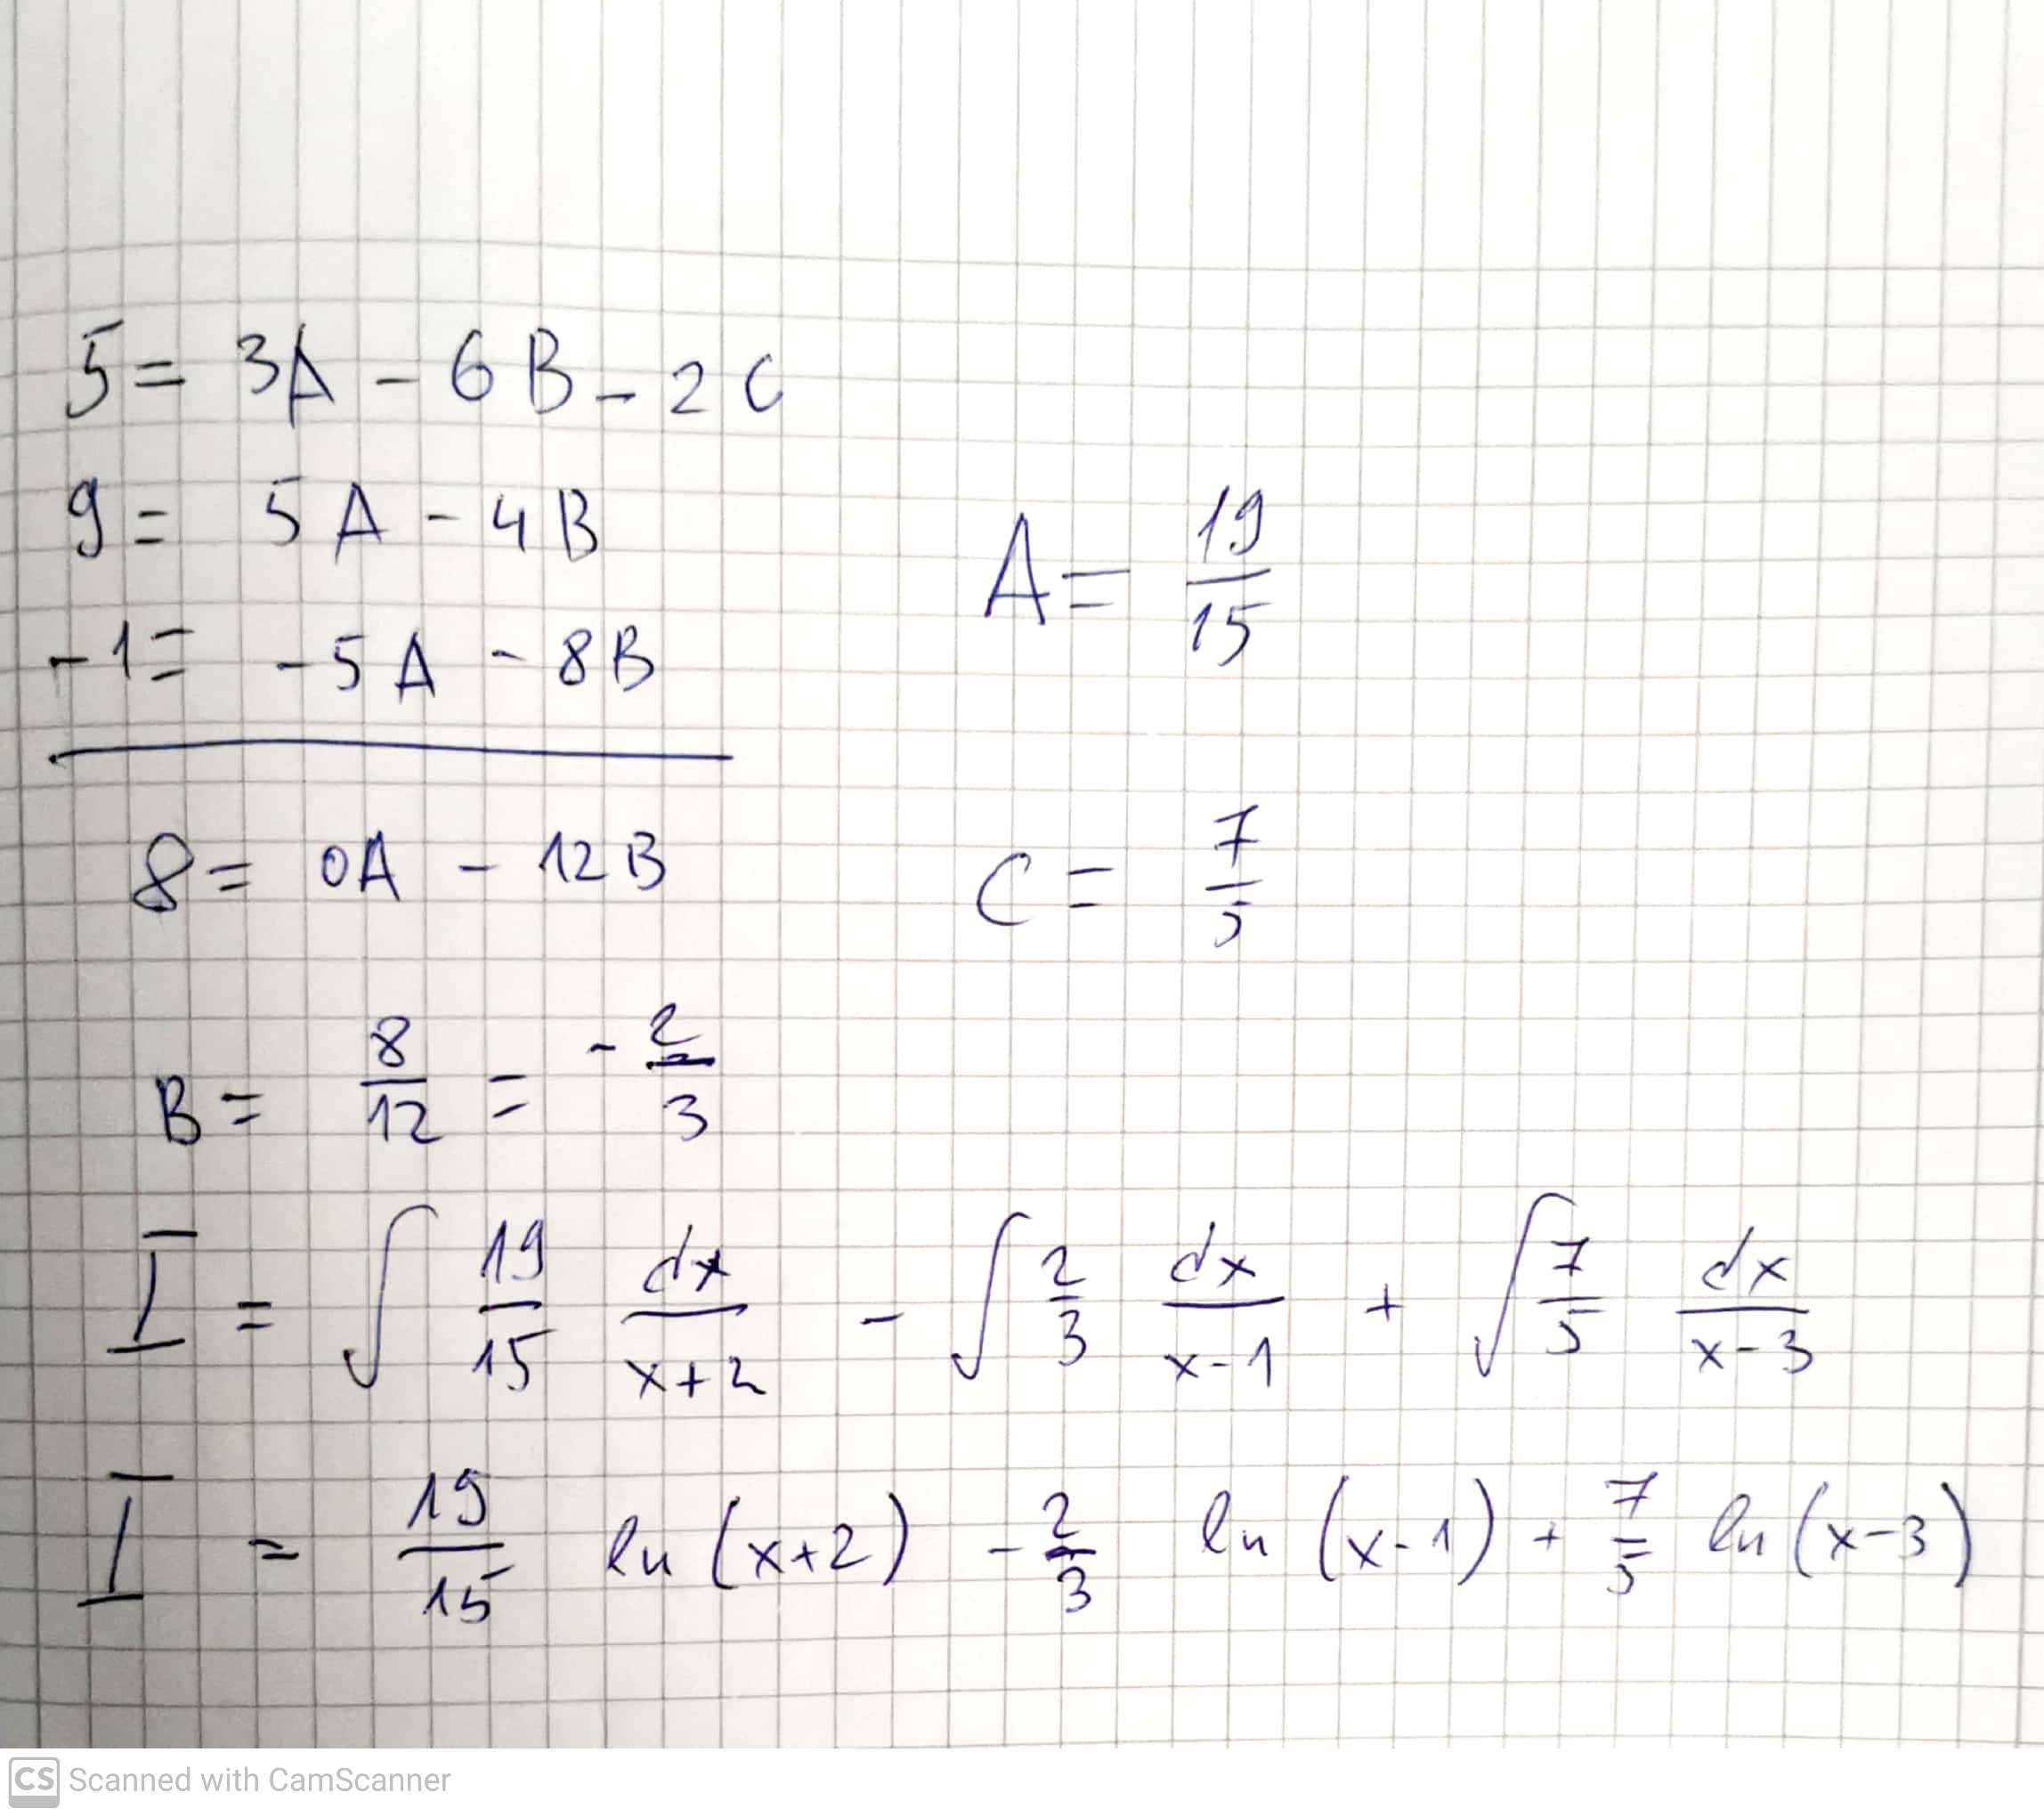 5 = 3A - 6B - 2C
9 = 5A - 4B
-1 = -5A - 8B
A = 19/15
8 = 0A - 12B
C = 7/5
B = 8/12 = -2/3
I = ∫ 19/15 dx/(x+2) - ∫ 2/3 dx/(x-1) + ∫ 7/5 dx/(x-3)
I = 19/15 ln (x+2) - 2/3 ln (x-1) + 7/5 ln (x-3)
CS Scanned with CamScanner